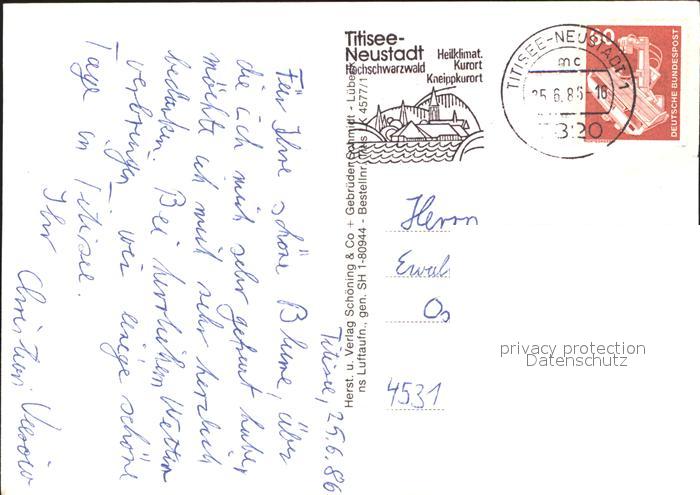 Titisee-
Neustadt
Hochschwarzwald
Heilklimat.
Kurort
Kneippkurort
TITISEE-NEUSTADT 1
mc
25.6.86-16
7820
60
DEUTSCHE BUNDESPOST
Titisee, 25.6.86
Für Ihre schöne Blume, über
die ich mich sehr gefreut habe,
möchte ich mich sehr herzlich
bedanken. Bei herrlichem Wetter
verbringen wir einige schöne
Tage in Titisee.
Ihr Christian
Herst. u. Verlag Schöning & Co + Gebrüder Schmidt - Lübe
ns Luftaufn., gen. SH 1-80944 - Bestellnr.
Herrn
Ewal
Os
4531
privacy protection
Datenschutz